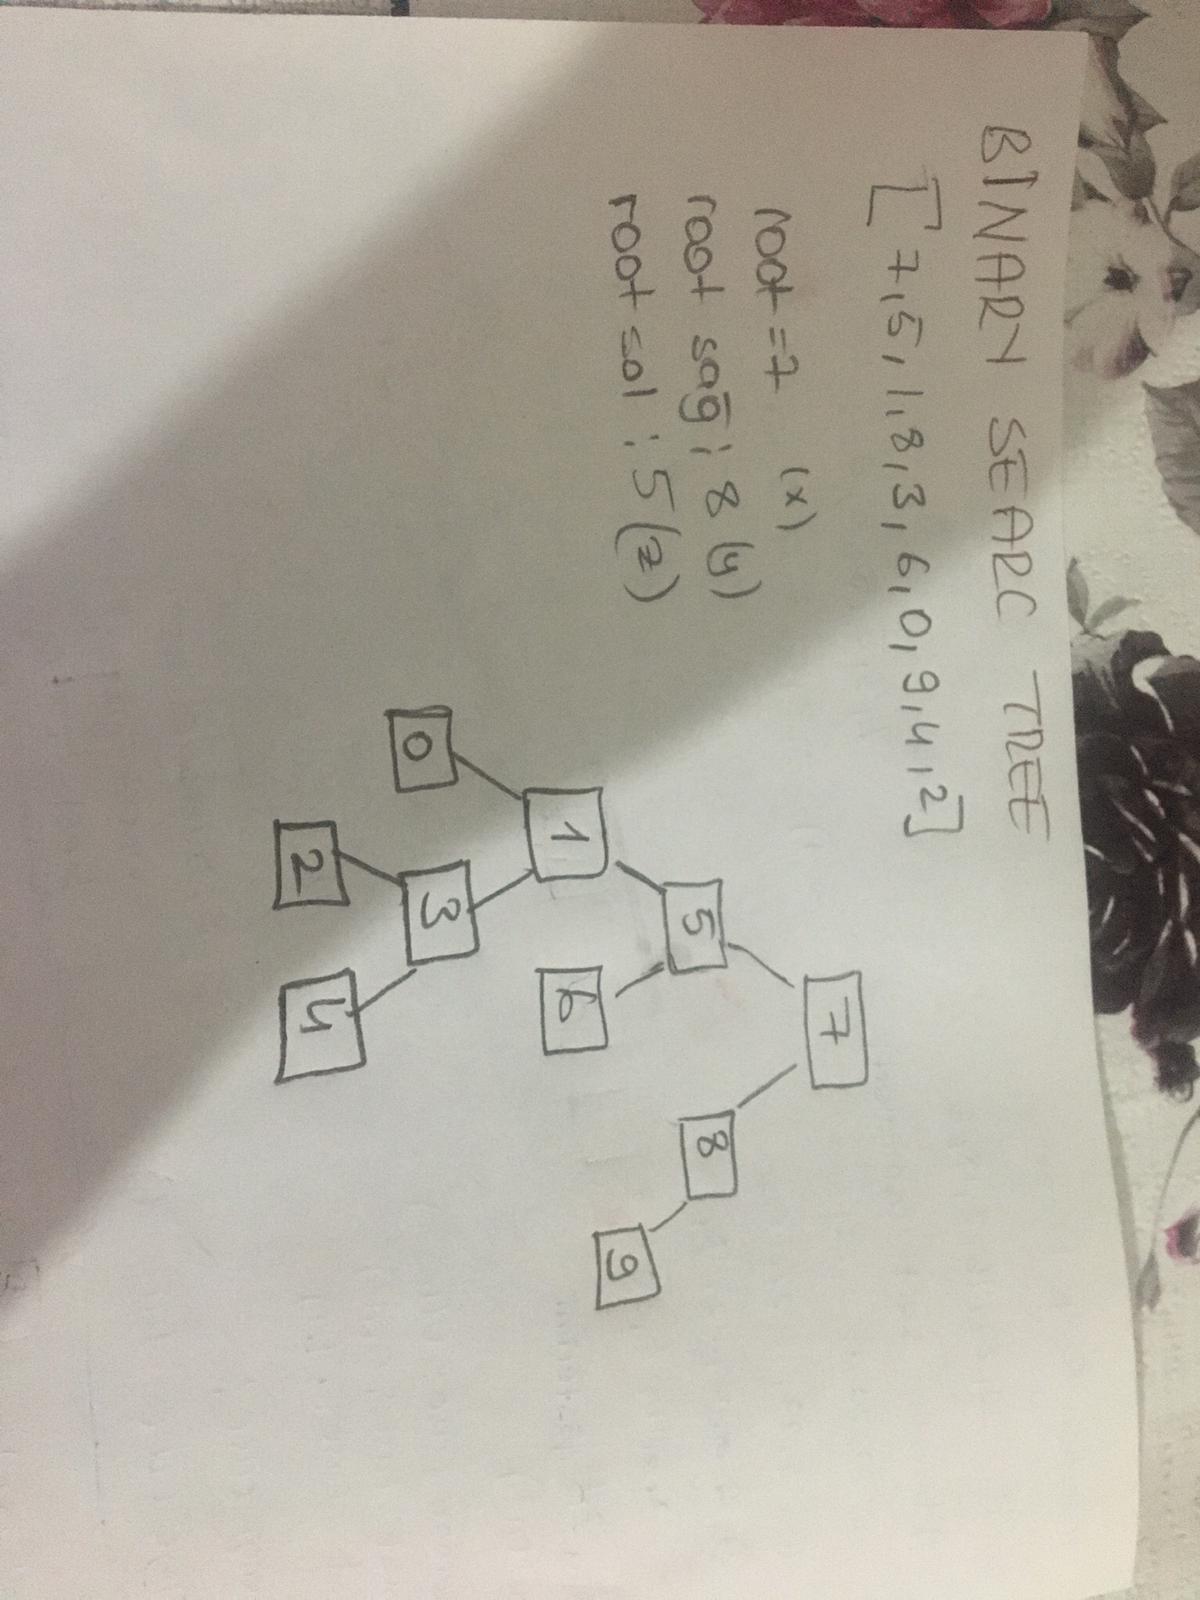 BINARY SEARC TREE
[7,5,1,8,3,6,0,9,4,2]
root =7 (x)
root sağ: 8 (y)
root sol: 5 (z)
7
5 8
1 6 9
0 3
2 4